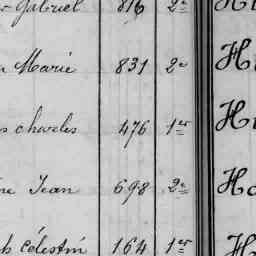 Gabriel 816 2e
Marie 831 2e
s charles 476 1er
re Jean 698 2e
Célestin 164 1er